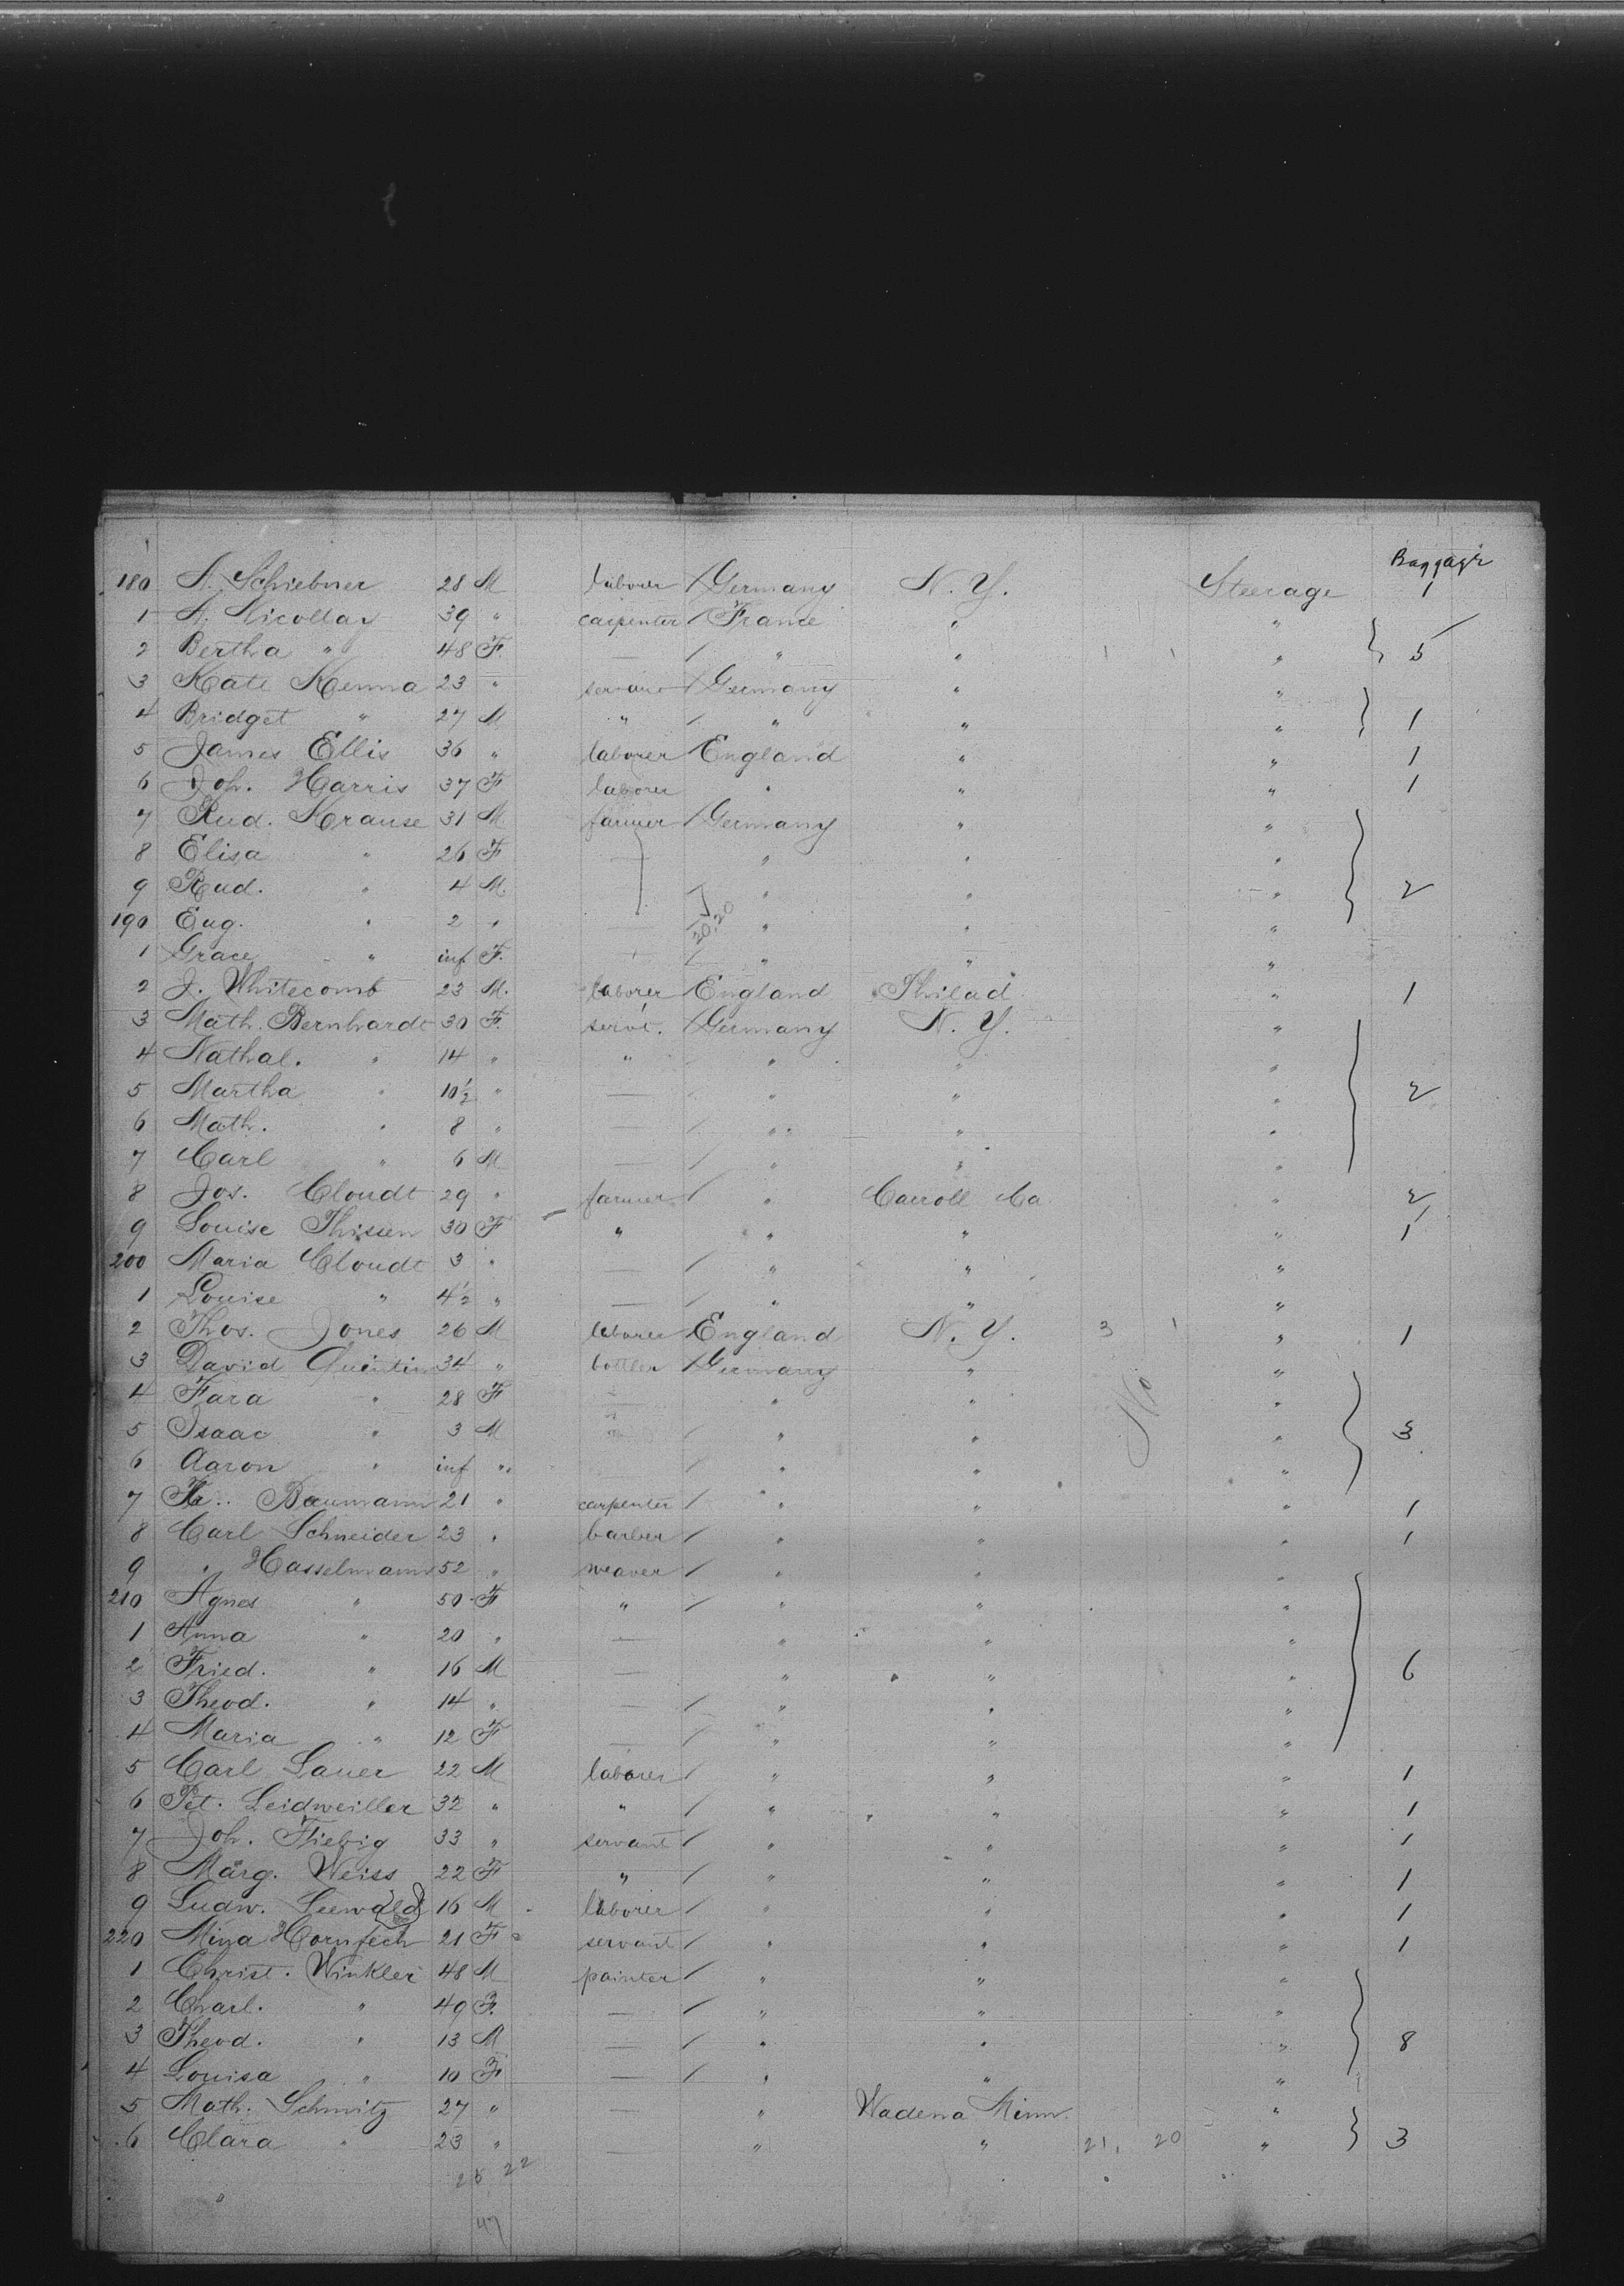 Baggage
180 A. Schiebner 28 M laborer / Germany N. Y. Steerage 1
1 A. Nicollay 39 " carpenter / France " "
2 Bertha " 48 F. — / " " " 5
3 Kate Kenna 23 " servant / Germany " "
4 Bridget " 27 M " / " " " 1
5 James Ellis 36 " laborer / England " " 1
6 Joh. Harris 37 F laborer " " " 1
7 Rud. Krause 31 M farmer / Germany " "
8 Elisa " 26 F — " " "
9 Rud. " 4 M. " " " 2
190 Eug. " 2 " — 20.20 " " "
1 Grace " inf F. / " " "
2 J. Whitecomb 23 M. laborer / England Philad " 1
3 Math. Bernhardt 30 F. servt. / Germany N. Y. "
4 Nathal. " 14 " " " " "
5 Martha " 10½ " — " " " 2
6 Math. " 8 " — / " " "
7 Carl " 6 M — / " " "
8 Jos. Cloudt 29 " farmer / " Carroll Ca " 2
9 Louise Thissen 30 F " " " " 1
200 Maria Cloudt 3 " — / " " "
1 Louise " 4½ " — / " " "
2 Thos. Jones 26 M laborer / England N. Y. 3 1 " 1
3 David Quentin 34 " bottler / Germany " "
4 Fara " 28 F — " " "
5 Isaac " 3 M / " " " 3
6 Aaron " inf " / " " "
7 Fr.. Baumann 21 " carpenter / " " " 1
8 Carl Schneider 23 " barber / " " " 1
9 " Hasselmann 52 " weaver / " " "
210 Agnes " 50 F " / " " "
1 Anna " 20 " — " " "
2 Fried. " 16 M — " " " 6
3 Theod. " 14 " — / " " "
4 Maria " 12 F — / " " "
5 Carl Lauer 22 M laborer / " " " 1
6 Pet. Leidweiller 32 " " / " " " 1
7 Joh. Fiebig 33 " servant / " " " 1
8 Marg. Weiss 22 F " / " " " 1
9 Ludw. Seewald 16 M laborer / " " " 1
220 Mina Hornfech 21 F servant / " " " 1
1 Christ. Winkler 48 M painter / " " "
2 Charl. " 49 F. — / " " "
3 Theod. " 13 M — / " " " 8
4 Louisa " 10 F — / " " "
5 Math. Schmitz 27 " — " Wadena Minn. "
6 Clara " 23 " — " " 21, 20 " 3
25 22
47